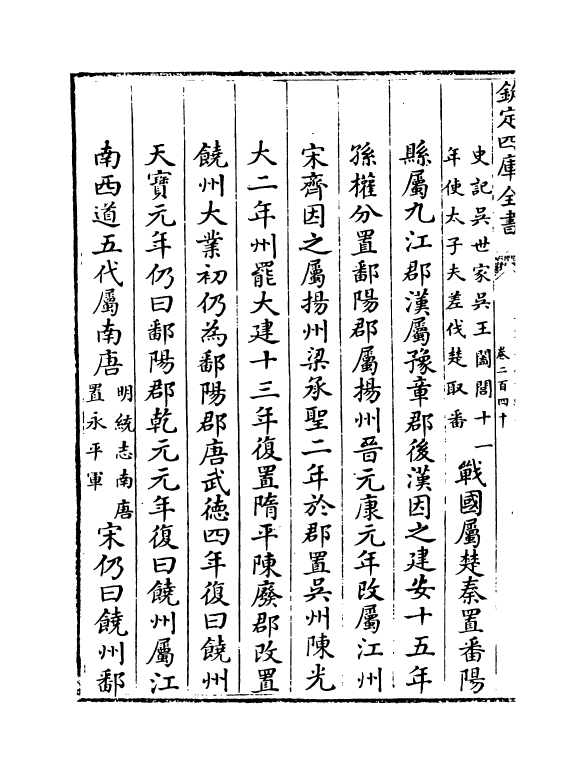 欽定四庫全書
卷二百四十
史記吳世家吳王闔閭十一
年使太子夫差伐楚取番
戰國屬楚秦置番陽
縣屬九江郡漢屬豫章郡後漢因之建安十五年
孫權分置鄱陽郡屬揚州晉元康元年改屬江州
宋齊因之屬揚州梁承聖二年於郡置吳州陳光
大二年州罷大建十三年復置隋平陳廢郡改置
饒州大業初仍為鄱陽郡唐武德四年復曰饒州
天寶元年仍曰鄱陽郡乾元元年復曰饒州屬江
南西道五代屬南唐
明統志南唐
置永平軍
宋仍曰饒州鄱